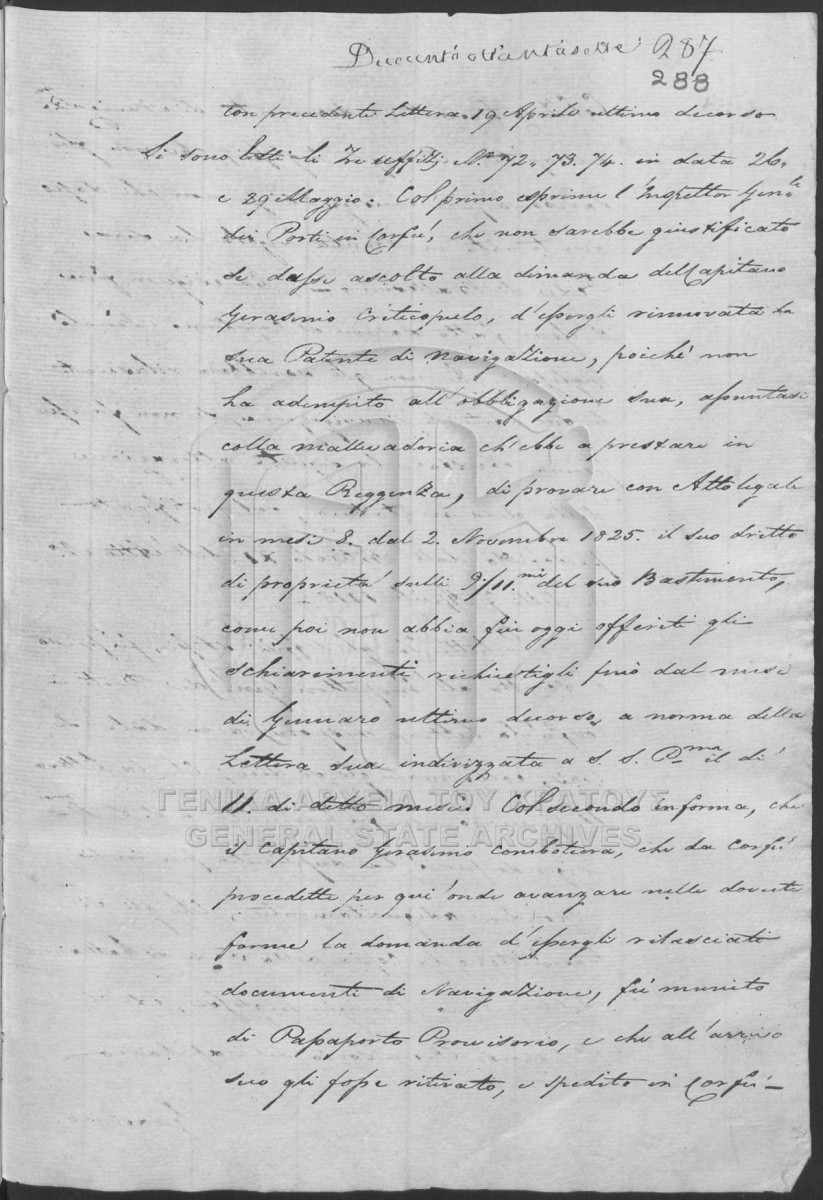 Duecentottantasette 287
288
con precedente Lettera 19 Aprile ultimo decorso
Si sono letti li Tre uffizj N.º 72. 73. 74. in data 26.
e 29 Maggio: Col primo esprime l'Inspettor Gen.le
dei Porti in Corfú, che non sarebbe giustificato
se dasse ascolto alla dimanda del Capitano
Gerasimo Criticopulo, d'essergli rinnovata la
sua Patente di Navigazione, poichè non
ha adempito all'obbligazione sua, assuntasi
colla mallevadoria ch'ebbe a prestare in
questa Reggenza, di provare con Atto legale
in mesi 8. dal 2. Novembre 1825. il suo dritto
di proprietá sulli 9/11.mi del suo Bastimento,
come poi non abbia fin oggi offeriti gli
schiarimenti richiestigli fino dal mese
di Gennaro ultimo decorso, a norma della
Lettera sua indirizzata a S. S. P.ma il dí
11. di detto mese. Col secondo informa, che
il Capitano Gerasimo Combotecra, che da Corfú
procedette per quí onde avanzare nelle dovute
forme la domanda d'essergli rilasciati
documenti di Navigazione, fú munito
di Passaporto Provisorio, e che all'arrivo
suo gli fosse ritirato, e spedito in Corfú –
ΓΕΝΙΚΑ ΑΡΧΕΙΑ ΤΟΥ ΚΡΑΤΟΥΣ
GENERAL STATE ARCHIVES